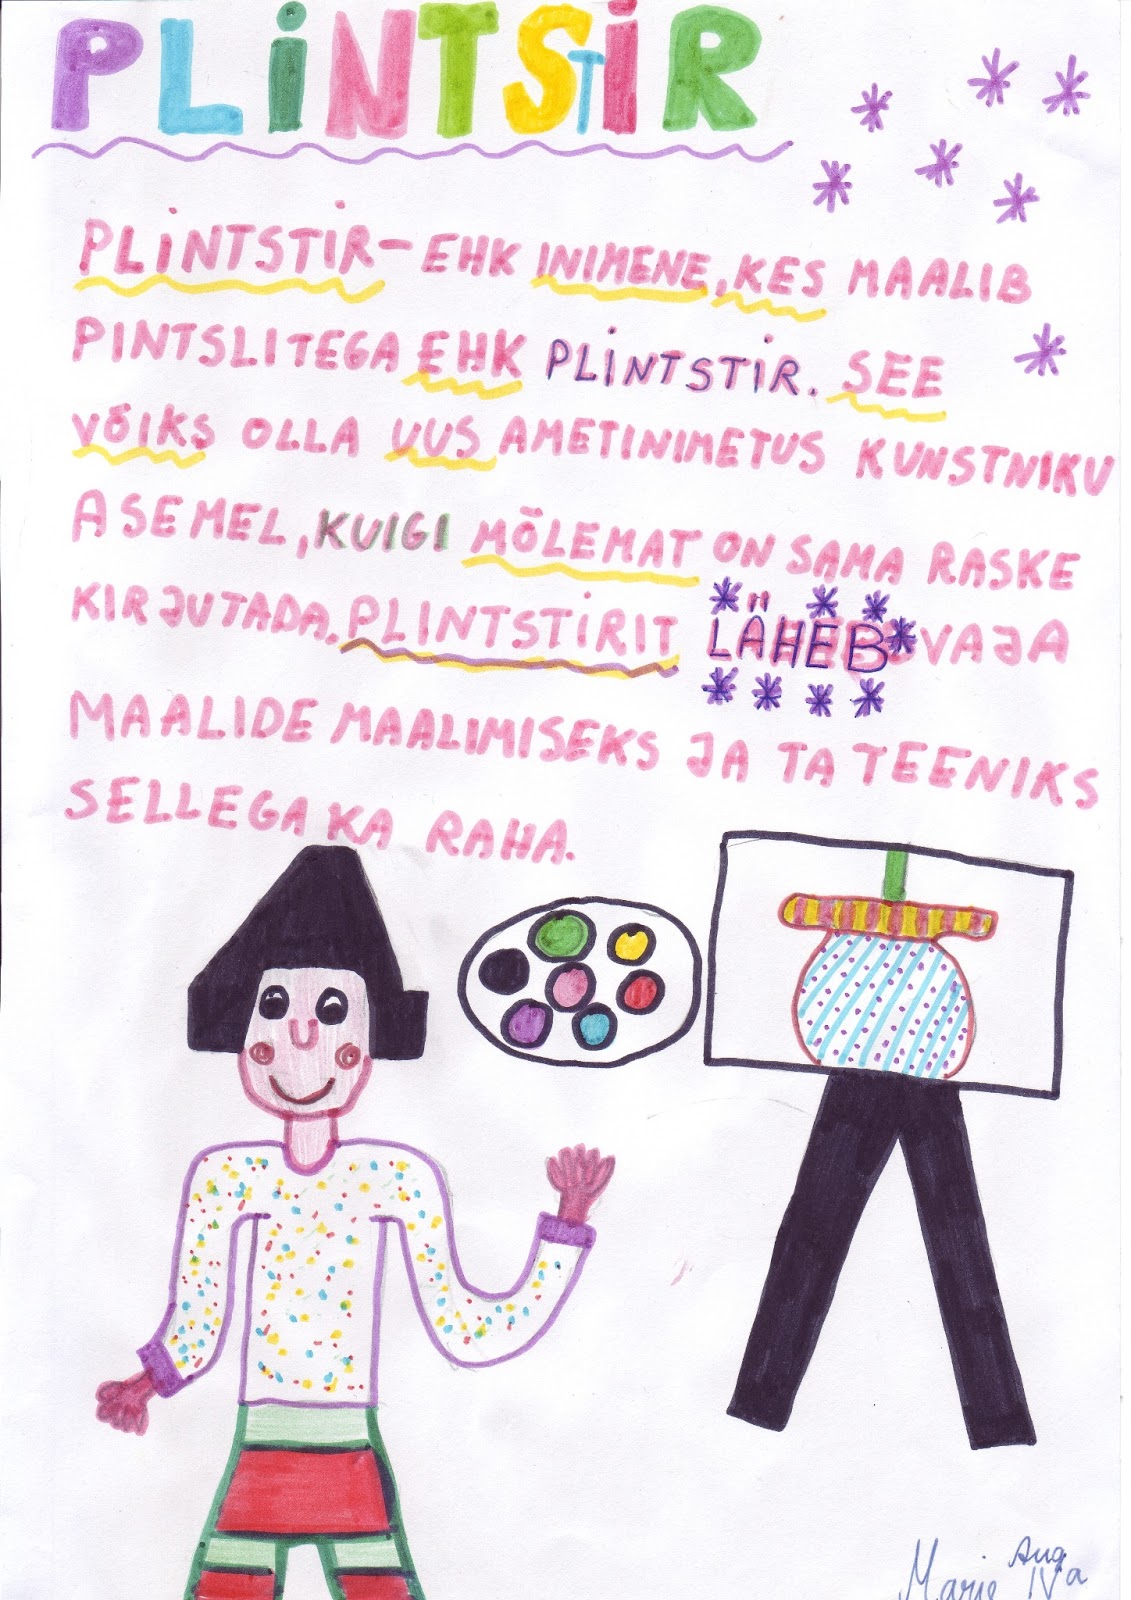 PLiNTSTiR
PLiNTSTiR - EHK INIMENE, KES MAALIB
PINTSLITEGA EHK PLiNTSTiR. SEE
VÕIKS OLLA UUS AMETINIMETUS KUNSTNIKU
ASEMEL, KUIGI MÕLEMAT ON SAMA RASKE
KIRJUTADA. PLINTSTiRIT LÄHEB VAJA
MAALIDE MAALIMISEKS JA TA TEENIKS
SELLEGA KA RAHA.
Marie Aug
IVa